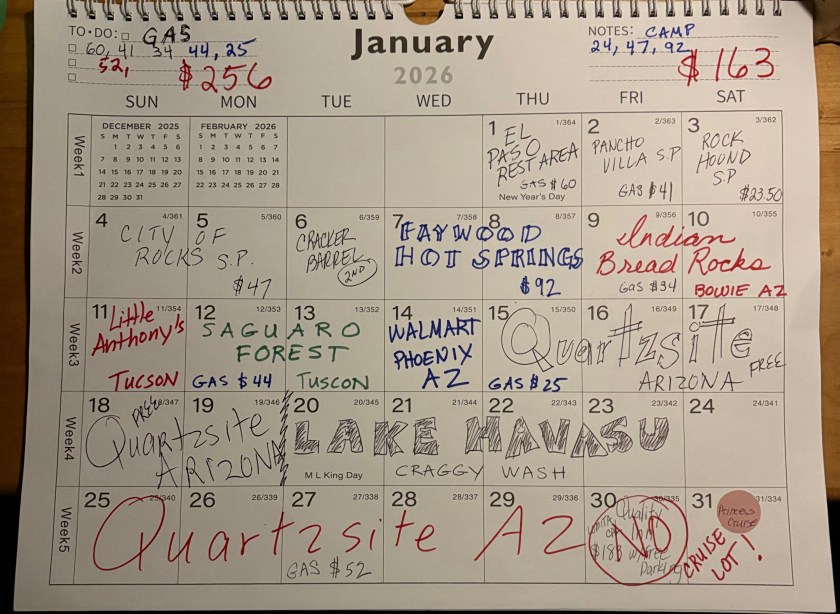 TO·DO: GAS
60, 41 34 44, 25
52, $256
January
2026
NOTES: CAMP
24, 47, 92
$163
SUN MON TUE WED THU FRI SAT
Week1
DECEMBER 2025
S M T W T F S
1 2 3 4 5 6
7 8 9 10 11 12 13
14 15 16 17 18 19 20
21 22 23 24 25 26 27
28 29 30 31
FEBRUARY 2026
S M T W T F S
1 2 3 4 5 6 7
8 9 10 11 12 13 14
15 16 17 18 19 20 21
22 23 24 25 26 27 28
1 1/364
EL
PASO
REST AREA
GAS $60
New Year's Day
2 2/363
PANCHO
VILLA S.P
GAS $41
3 3/362
ROCK
HOUND
S.P
$23.50
Week2
4 4/361 5 5/360
CITY OF
ROCKS S.P.
$47
6 6/359
CRACKER
BARREL
2ND
7 7/358 8 8/357
FAYWOOD
HOT SPRINGS
$92
9 9/356 10 10/355
Indian
Bread Rocks
GAS $34 BOWIE AZ
Week3
11 11/354
Little
Anthony's
TUCSON
12 12/353 13 13/352
SAGUARO
FOREST
GAS $44 TUSCON
14 14/351
WALMART
PHOENIX
AZ
15 15/350 16 16/349 17 17/348
Quartzsite
ARIZONA FREE
GAS $25
Week4
18 18/347 19 19/346
FREE
Quartzsite
ARIZONA
20 20/345 21 21/344 22 22/343 23 23/342
LAKE HAVASU
M L King Day CRAGGY WASH
24 24/341
Week5
25 25/340 26 26/339 27 27/338 28 28/337 29 29/336
Quartzsite AZ
GAS $52
30 30/335
Quality
Inn
$183 w/FREE
Parking
NO
31 31/334
Princess
Cruise
CRUISE
LOT!